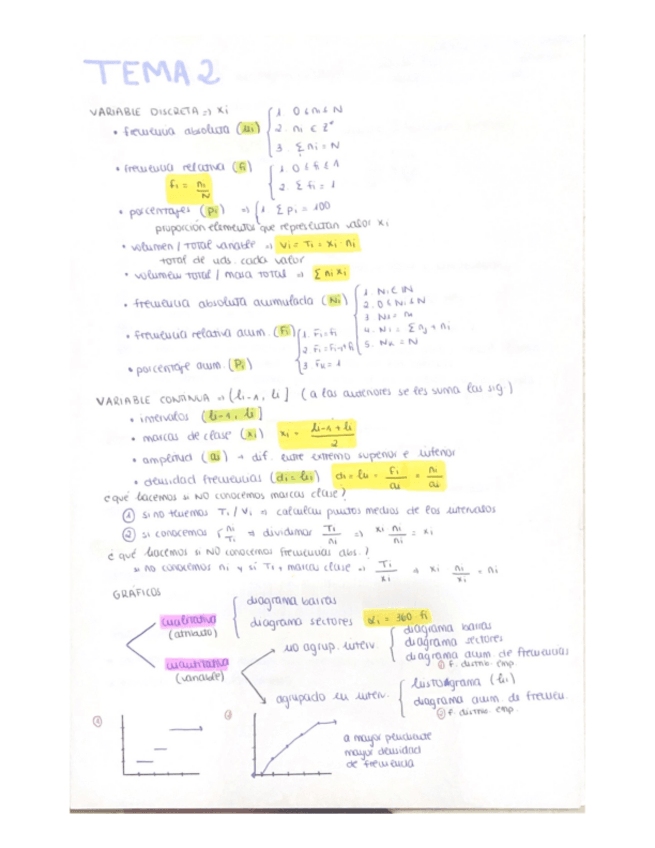 TEMA 2
VARIABLE DISCRETA ⇒ xi
• frecuencia absoluta (ni) { 1. 0 ≤ ni ≤ N
2. ni ∈ Z+
3. Σ ni = N
• frecuencia relativa (fi) { 1. 0 ≤ fi ≤ 1
fi = ni/N
2. Σ fi = 1
• porcentajes (pi) ⇒ { 1. Σ pi = 100
proporción elementos que representan valor xi
• volumen / total variable ⇒ Vi = Ti = xi · ni
total de uds. cada valor
• volumen total / masa total ⇒ Σ ni xi
• frecuencia absoluta acumulada (Ni) { 1. Ni ∈ IN
2. 0 ≤ Ni ≤ N
3. N1 = n1
4. Ni = Σ nj + ni
5. Nk = N
• frecuencia relativa acum. (Fi) { 1. F1 = f1
2. Fi = Fi-1 + fi
3. Fk = 1
• porcentaje acum. (Pi)
VARIABLE CONTINUA ⇒ (li-1, li] (a las anteriores se les suma las sig.)
• intervalos (li-1, li]
• marcas de clase (xi) xi = li-1 + li / 2
• amplitud (ai) → dif. entre extremo superior e inferior
• densidad frecuencias (di = hi) di = hi = fi/ai = ni/ai
¿qué hacemos si NO conocemos marcas clase?
① si no tenemos Ti / Vi ⇒ calcular puntos medios de los intervalos
② si conocemos { ni Ti ⇒ dividimos Ti/ni ⇒ xi · ni/ni = xi
¿qué hacemos si NO conocemos frecuencias abs.?
si no conocemos ni y sí Ti y marcas clase ⇒ Ti/xi → xi ni/xi = ni
GRÁFICOS
cualitativa (atributo) { diagrama barras
diagrama sectores αi = 360 · fi
cuantitativa (variable)
no agrup. interv. { diagrama barras
diagrama sectores
diagrama acum de frecuencias
① f. distrib. emp.
agrupado en interv. { histograma (hi)
diagrama acum. de frecuen.
② f. distrib. emp.
①
②
a mayor pendiente
mayor densidad
de frecuencia